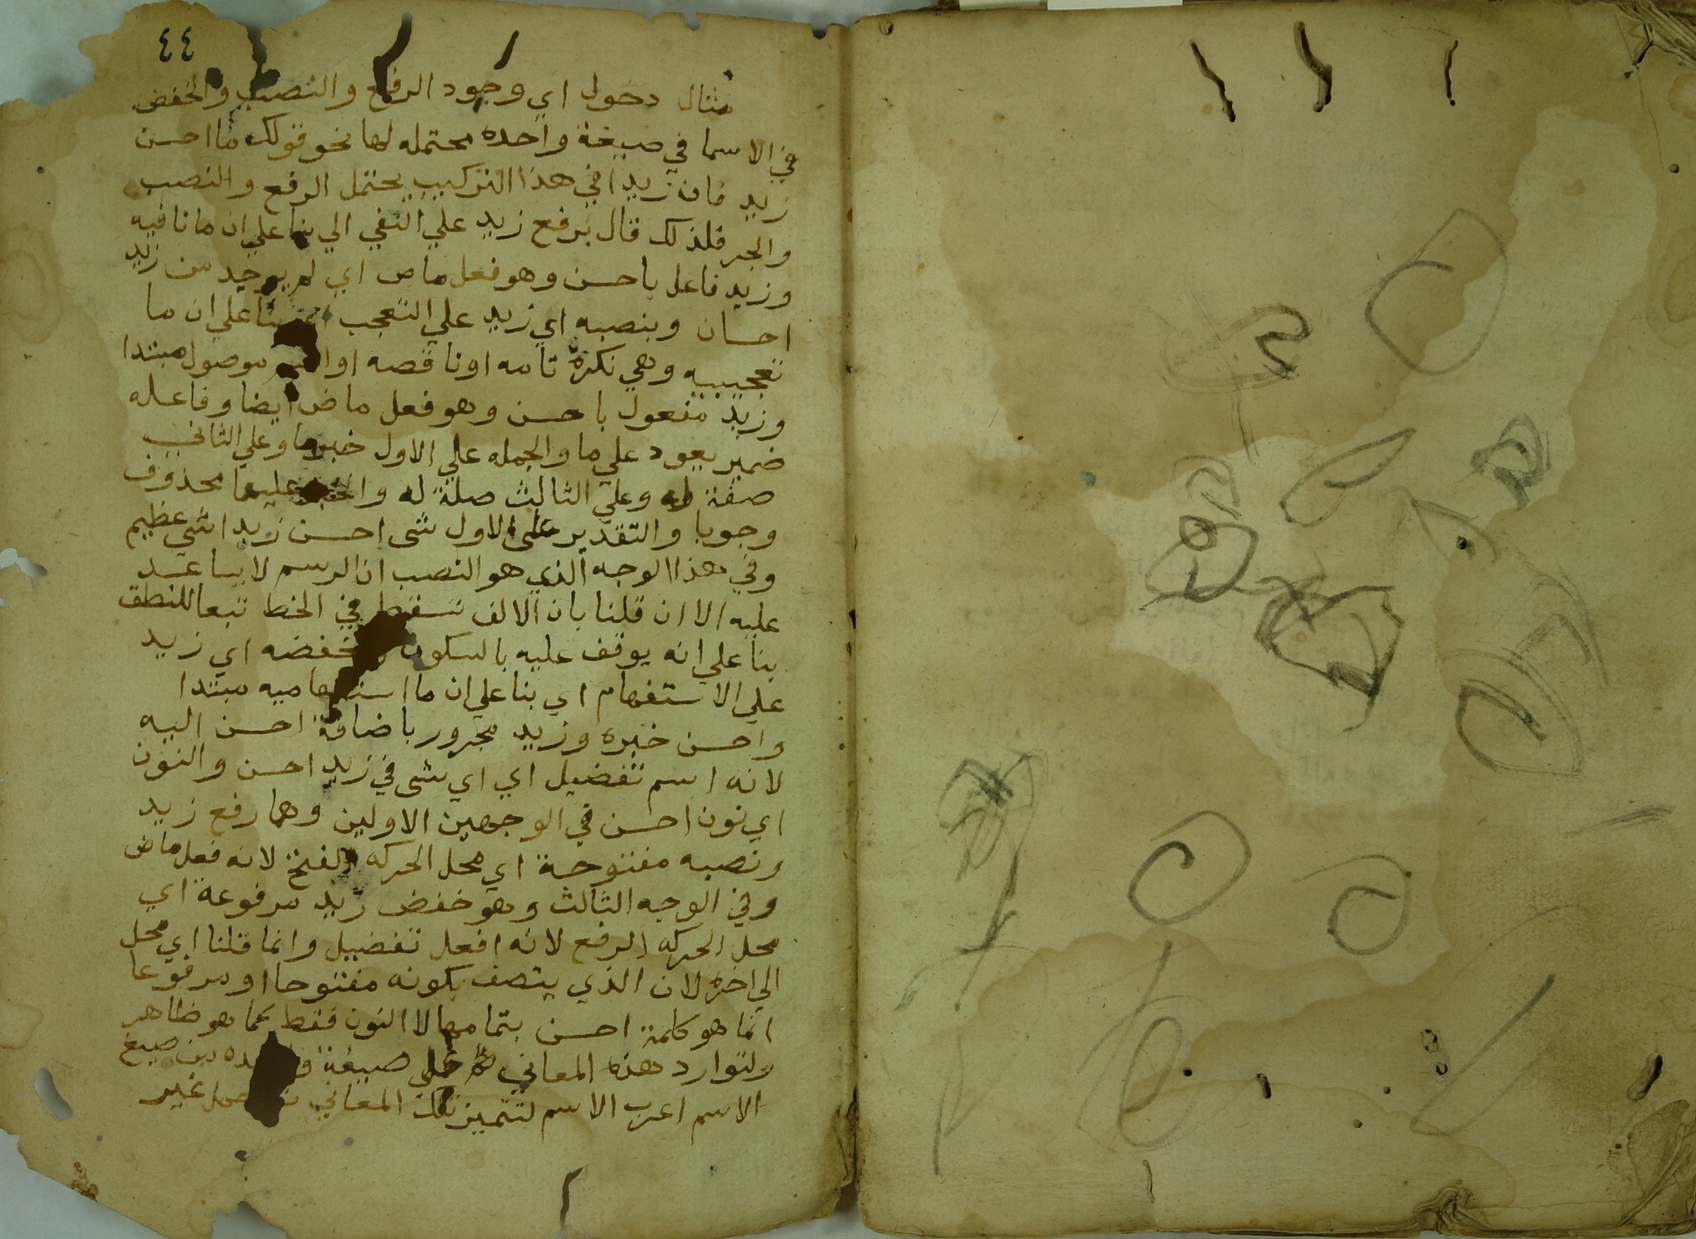 ٤٤
مثال دخول اي وجود الرفع والنصب والخفض
في الاسما في صيغة واحده محتمله لها نحو قولك ما احسن
زيد فان زيدا في هذا التركيب يحتمل الرفع والنصب
والجر فلذلك قال برفع زيد علي النفي الي بنا علي ان ما نافيه
وزيد فاعل باحسن وهو فعل ماض اي لم يوجد من زيد
احسان وبنصبه اي زيد علي التعجب بنا علي ان ما
تعجبيبيه وهي نكرة تامه او ناقصه او موصول مبتدا
وزيد مفعول باحسن وهو فعل ماض ايضا وفاعله
ضمير يعود علي ما والجمله علي الاول خبرها وعلي الثاني
صفة له وعلي الثالث صلة له والخبر عليهما محذوف
وجوبا والتقدير علي الاول شي احسن زيدا شي عظيم
وفي هذا الوجه الذي هو النصب ان الرسم لا يساعد
عليه الا ان قلنا بان الالف تسقط في الخط تبعا للنطق
بنا علي انه يوقف عليه بالسكون وبخفضه اي زيد
علي الاستفهام اي بنا علي ان ما استفهاميه مبتدا
واحسن خبره وزيد مجرور باضافة احسن اليه
لانه اسم تفضيل اي اي شي في زيد احسن والنون
اي نون احسن في الوجهين الاولين وهما رفع زيد
ونصبه مفتوحة اي محل الحركه الفتح لانه فعل ماض
وفي الوجه الثالث وهو خفض زيد مرفوعة اي
محل الحركه الرفع لانه افعل تفضيل وانما قلنا اي محل
الي اخره لان الذي يتصف بكونه مفتوحا او مرفوعا
انما هو كلمة احسن بتمامها لا النون فقط كما هو ظاهر
ولتوارد هذه المعاني علي صيغة واحده من صيغ
الاسم اعرب الاسم لتتميز تلك المعاني غير